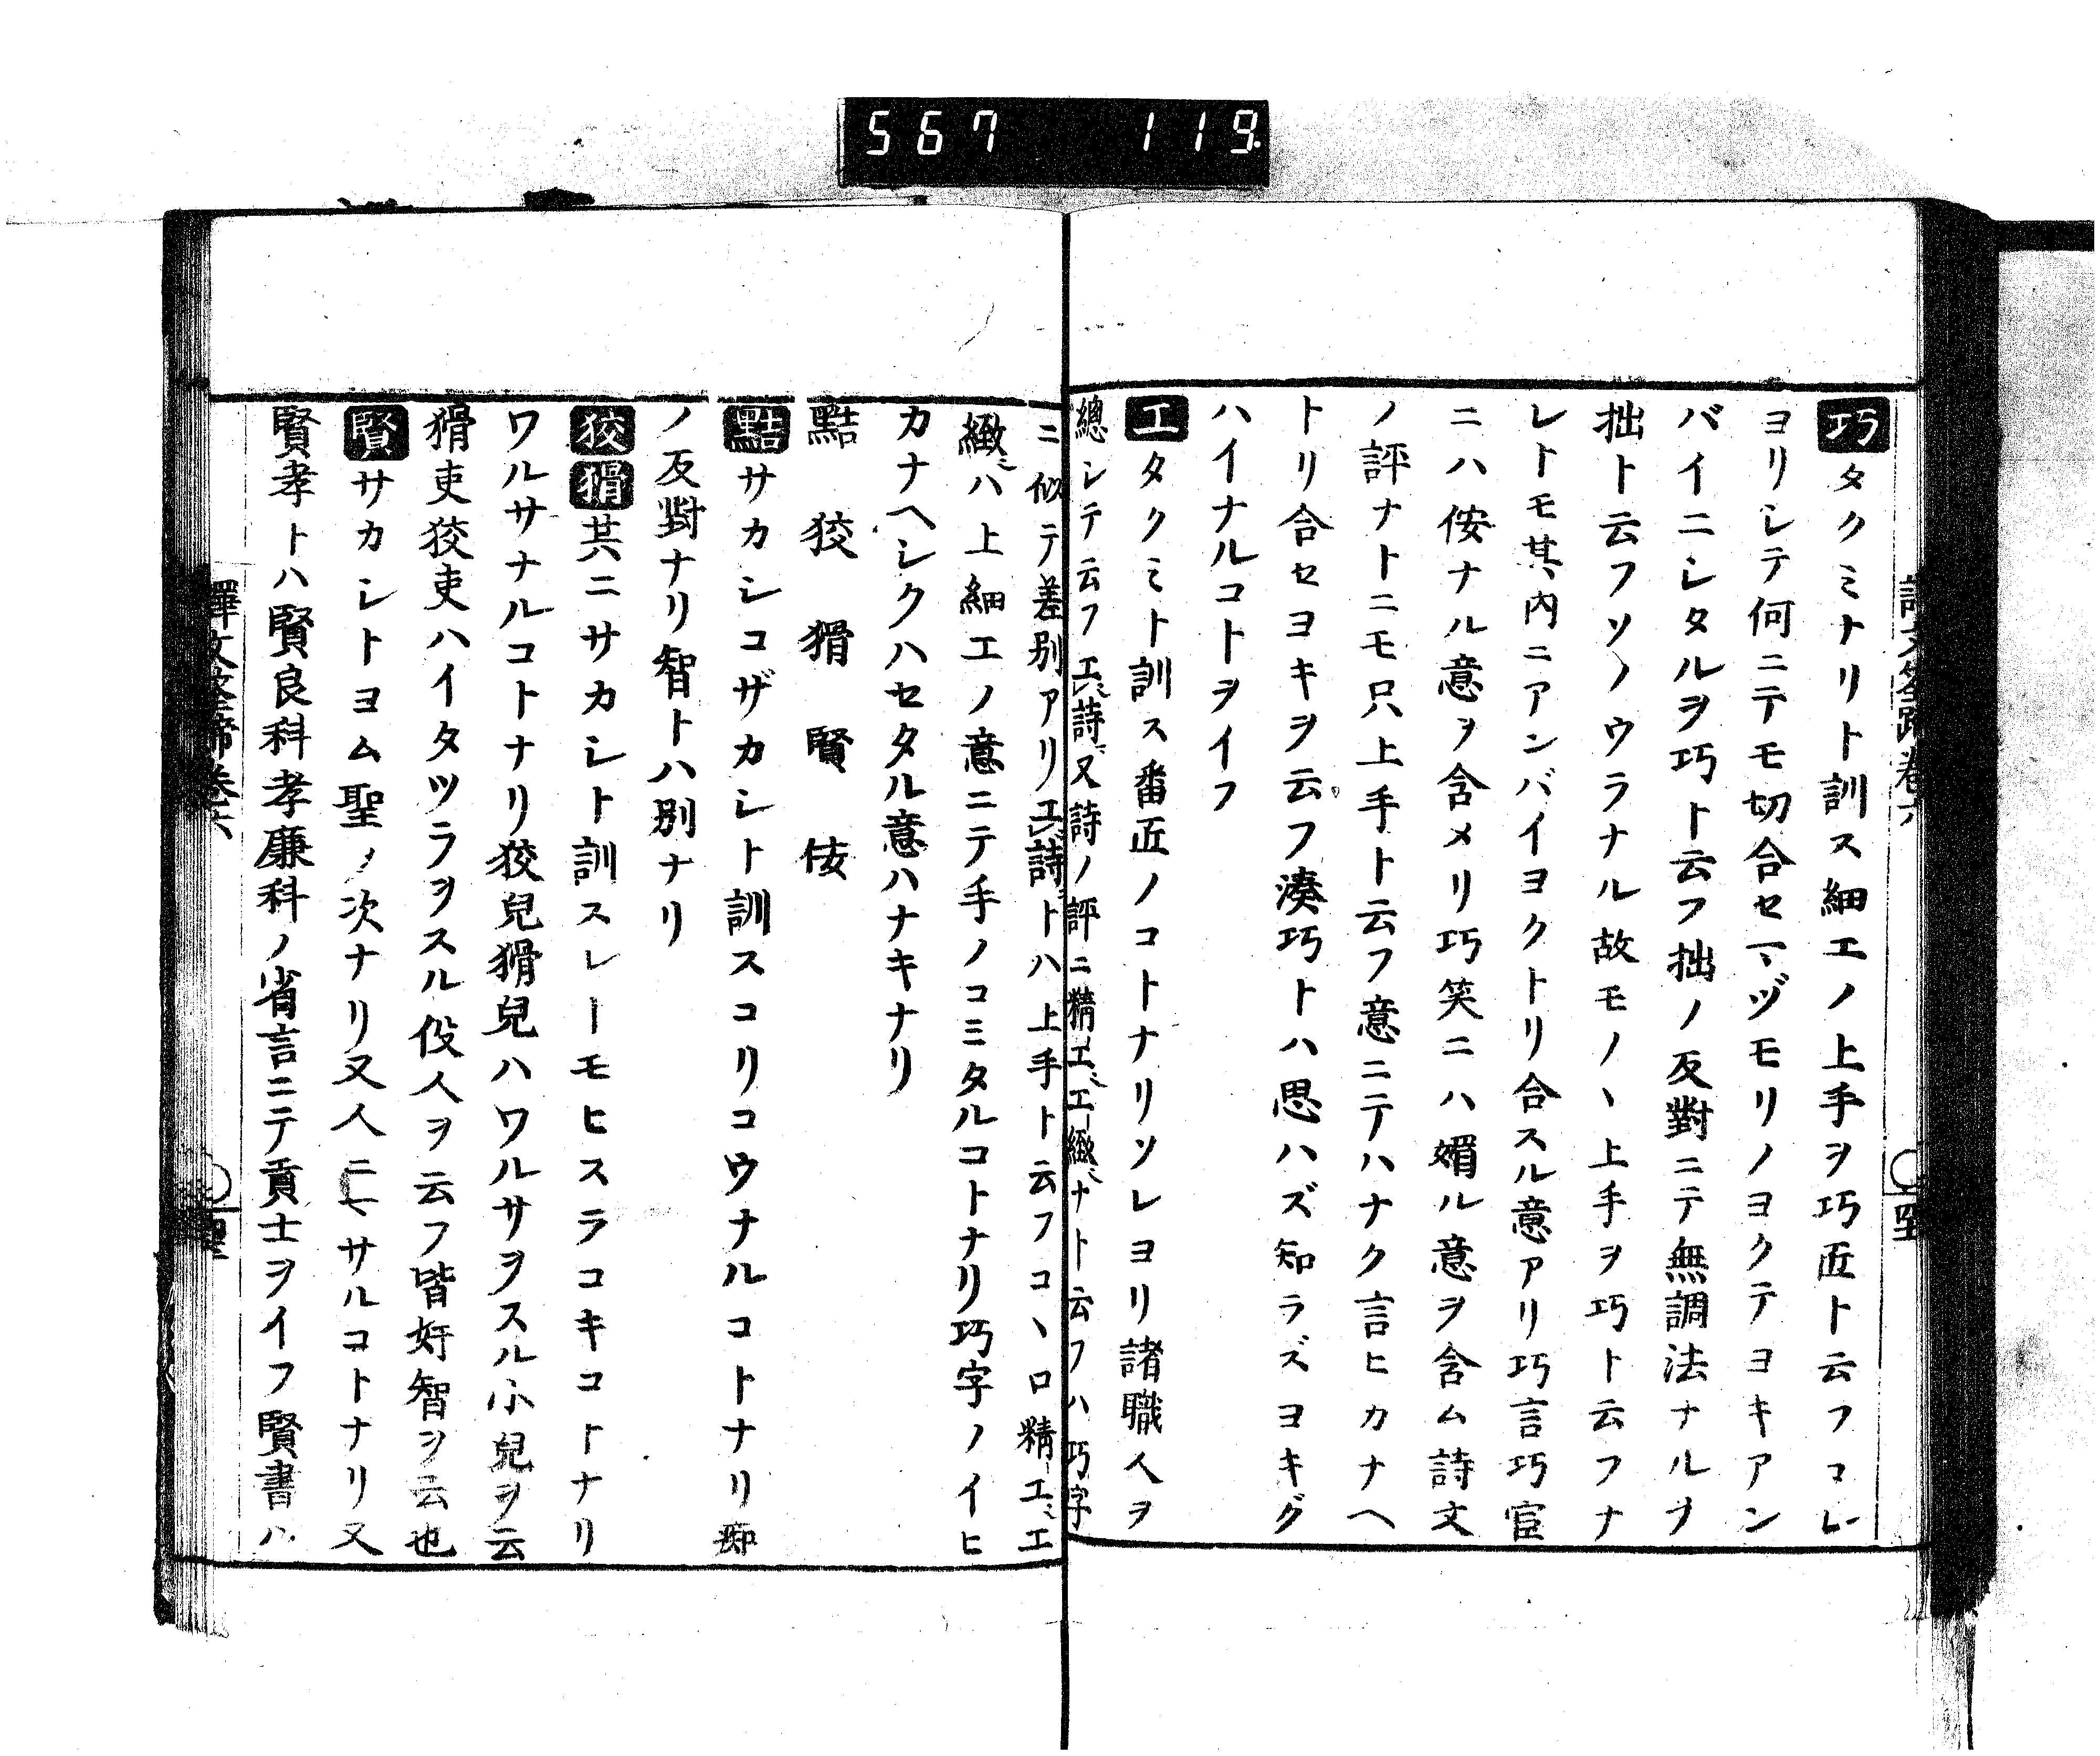 567 119
巧タクミナリト訓ス細工ノ上手ヲ巧匠ト云フコレ
ヨリシテ何ニテモ切合セ一ヽヅモリノヨクテヨキアン
バイニシタルヲ巧ト云フ拙ノ反對ニテ無調法ナルヲ
拙ト云フソノウラナル故モノヽ上手ヲ巧ト云フナ
レトモ其内ニアンバイヨクトリ合スル意アリ巧言巧宦
ニハ侫ナル意ヲ含メリ巧笑ニハ媚ル意ヲ含ム詩文
ノ評ナトニモ只上手ト云フ意ニテハナク言ヒカナヘ
トリ合セヨキヲ云フ湊巧トハ思ハズ知ラズヨキグ
ハイナルコトヲイフ
工タクミト訓ス番匠ノコトナリソレヨリ諸職人ヲ
總シテ云フ工詩又詩ノ評ニ精工工緻ナト云フハ巧字
ニ似テ差別アリ工詩トハ上手ト云フコヽロ精工工
緻ハ上細工ノ意ニテ手ノコミタルコトナリ巧字ノイヒ
カナヘシクハセタル意ハナキナリ
黠 狡 猾 賢 侫
黠サカシコザカシト訓スコリコウナルコトナリ痴
ノ反對ナリ智トハ別ナリ
狡猾共ニサカシト訓スレーモヒスラコキコトナリ
ワルサナルコトナリ狡兒猾兒ハワルサヲスル小兒ヲ云
猾吏狡吏ハイタツラヲスル役人ヲ云フ皆奸智ヲ云也
賢サカシトヨム聖ノ次ナリ又人ニマサルコトナリ又
賢孝トハ賢良科孝廉科ノ省言ニテ貢士ヲイフ賢書ハ
譯文筌蹄卷六